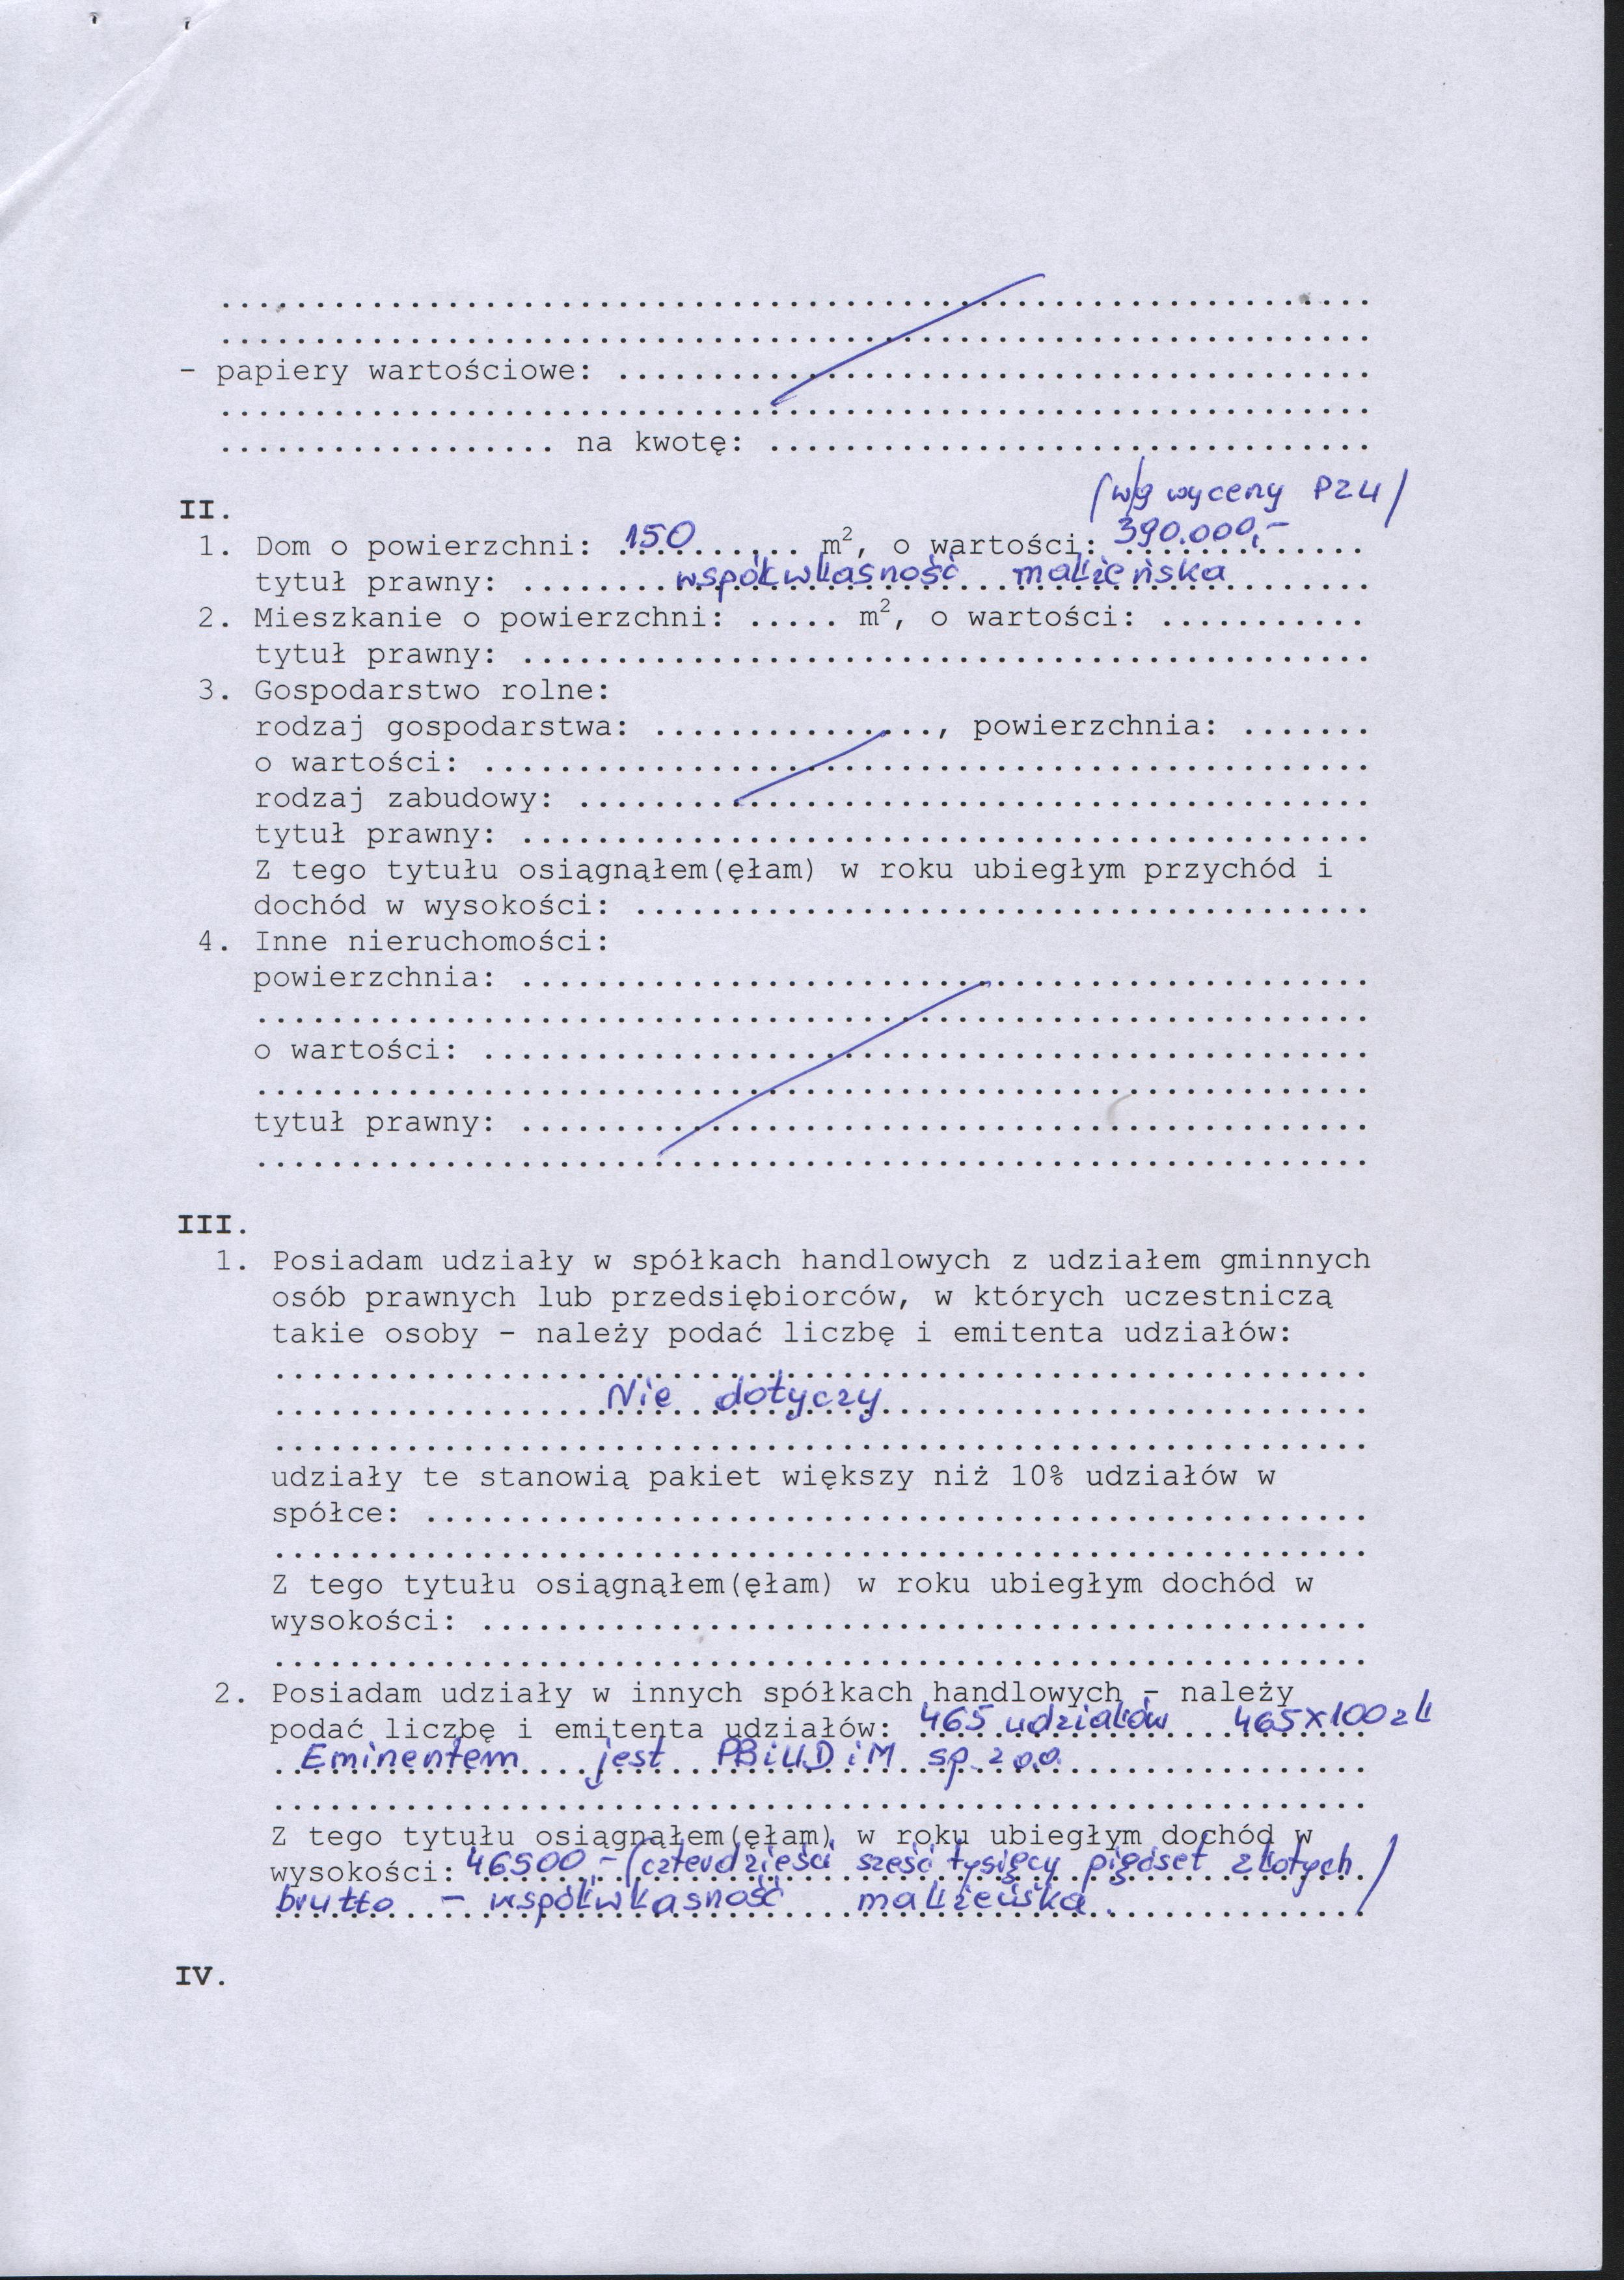 ............................................................
............................................................
- papiery wartościowe: .......................................
............................................................
.................. na kwotę: ...............................
(w/g wyceny PZU)
II.
1. Dom o powierzchni: 150 m², o wartości: 390.000,-
tytuł prawny: współwłasność małżeńska
2. Mieszkanie o powierzchni: ..... m², o wartości: ...........
tytuł prawny: ............................................
3. Gospodarstwo rolne:
rodzaj gospodarstwa: ..............., powierzchnia: .......
o wartości: ..............................................
rodzaj zabudowy: .........................................
tytuł prawny: ............................................
Z tego tytułu osiągnąłem(ęłam) w roku ubiegłym przychód i
dochód w wysokości: ......................................
4. Inne nieruchomości:
powierzchnia: ............................................
..........................................................
o wartości: ..............................................
..........................................................
tytuł prawny: ............................................
..........................................................
III.
1. Posiadam udziały w spółkach handlowych z udziałem gminnych
osób prawnych lub przedsiębiorców, w których uczestniczą
takie osoby - należy podać liczbę i emitenta udziałów:
.........................................................
Nie dotyczy
.........................................................
udziały te stanowią pakiet większy niż 10% udziałów w
spółce: .................................................
.........................................................
Z tego tytułu osiągnąłem(ęłam) w roku ubiegłym dochód w
wysokości: ..............................................
.........................................................
2. Posiadam udziały w innych spółkach handlowych - należy
podać liczbę i emitenta udziałów: 465 udziałów 465x100 zł
Eminentem jest PBiUDiM sp. z o.o.
.........................................................
Z tego tytułu osiągnąłem(ęłam) w roku ubiegłym dochód w
wysokości: 46500,- (czterdzieści sześć tysięcy pięćset złotych)
brutto - współwłasność małżeńska.
IV.